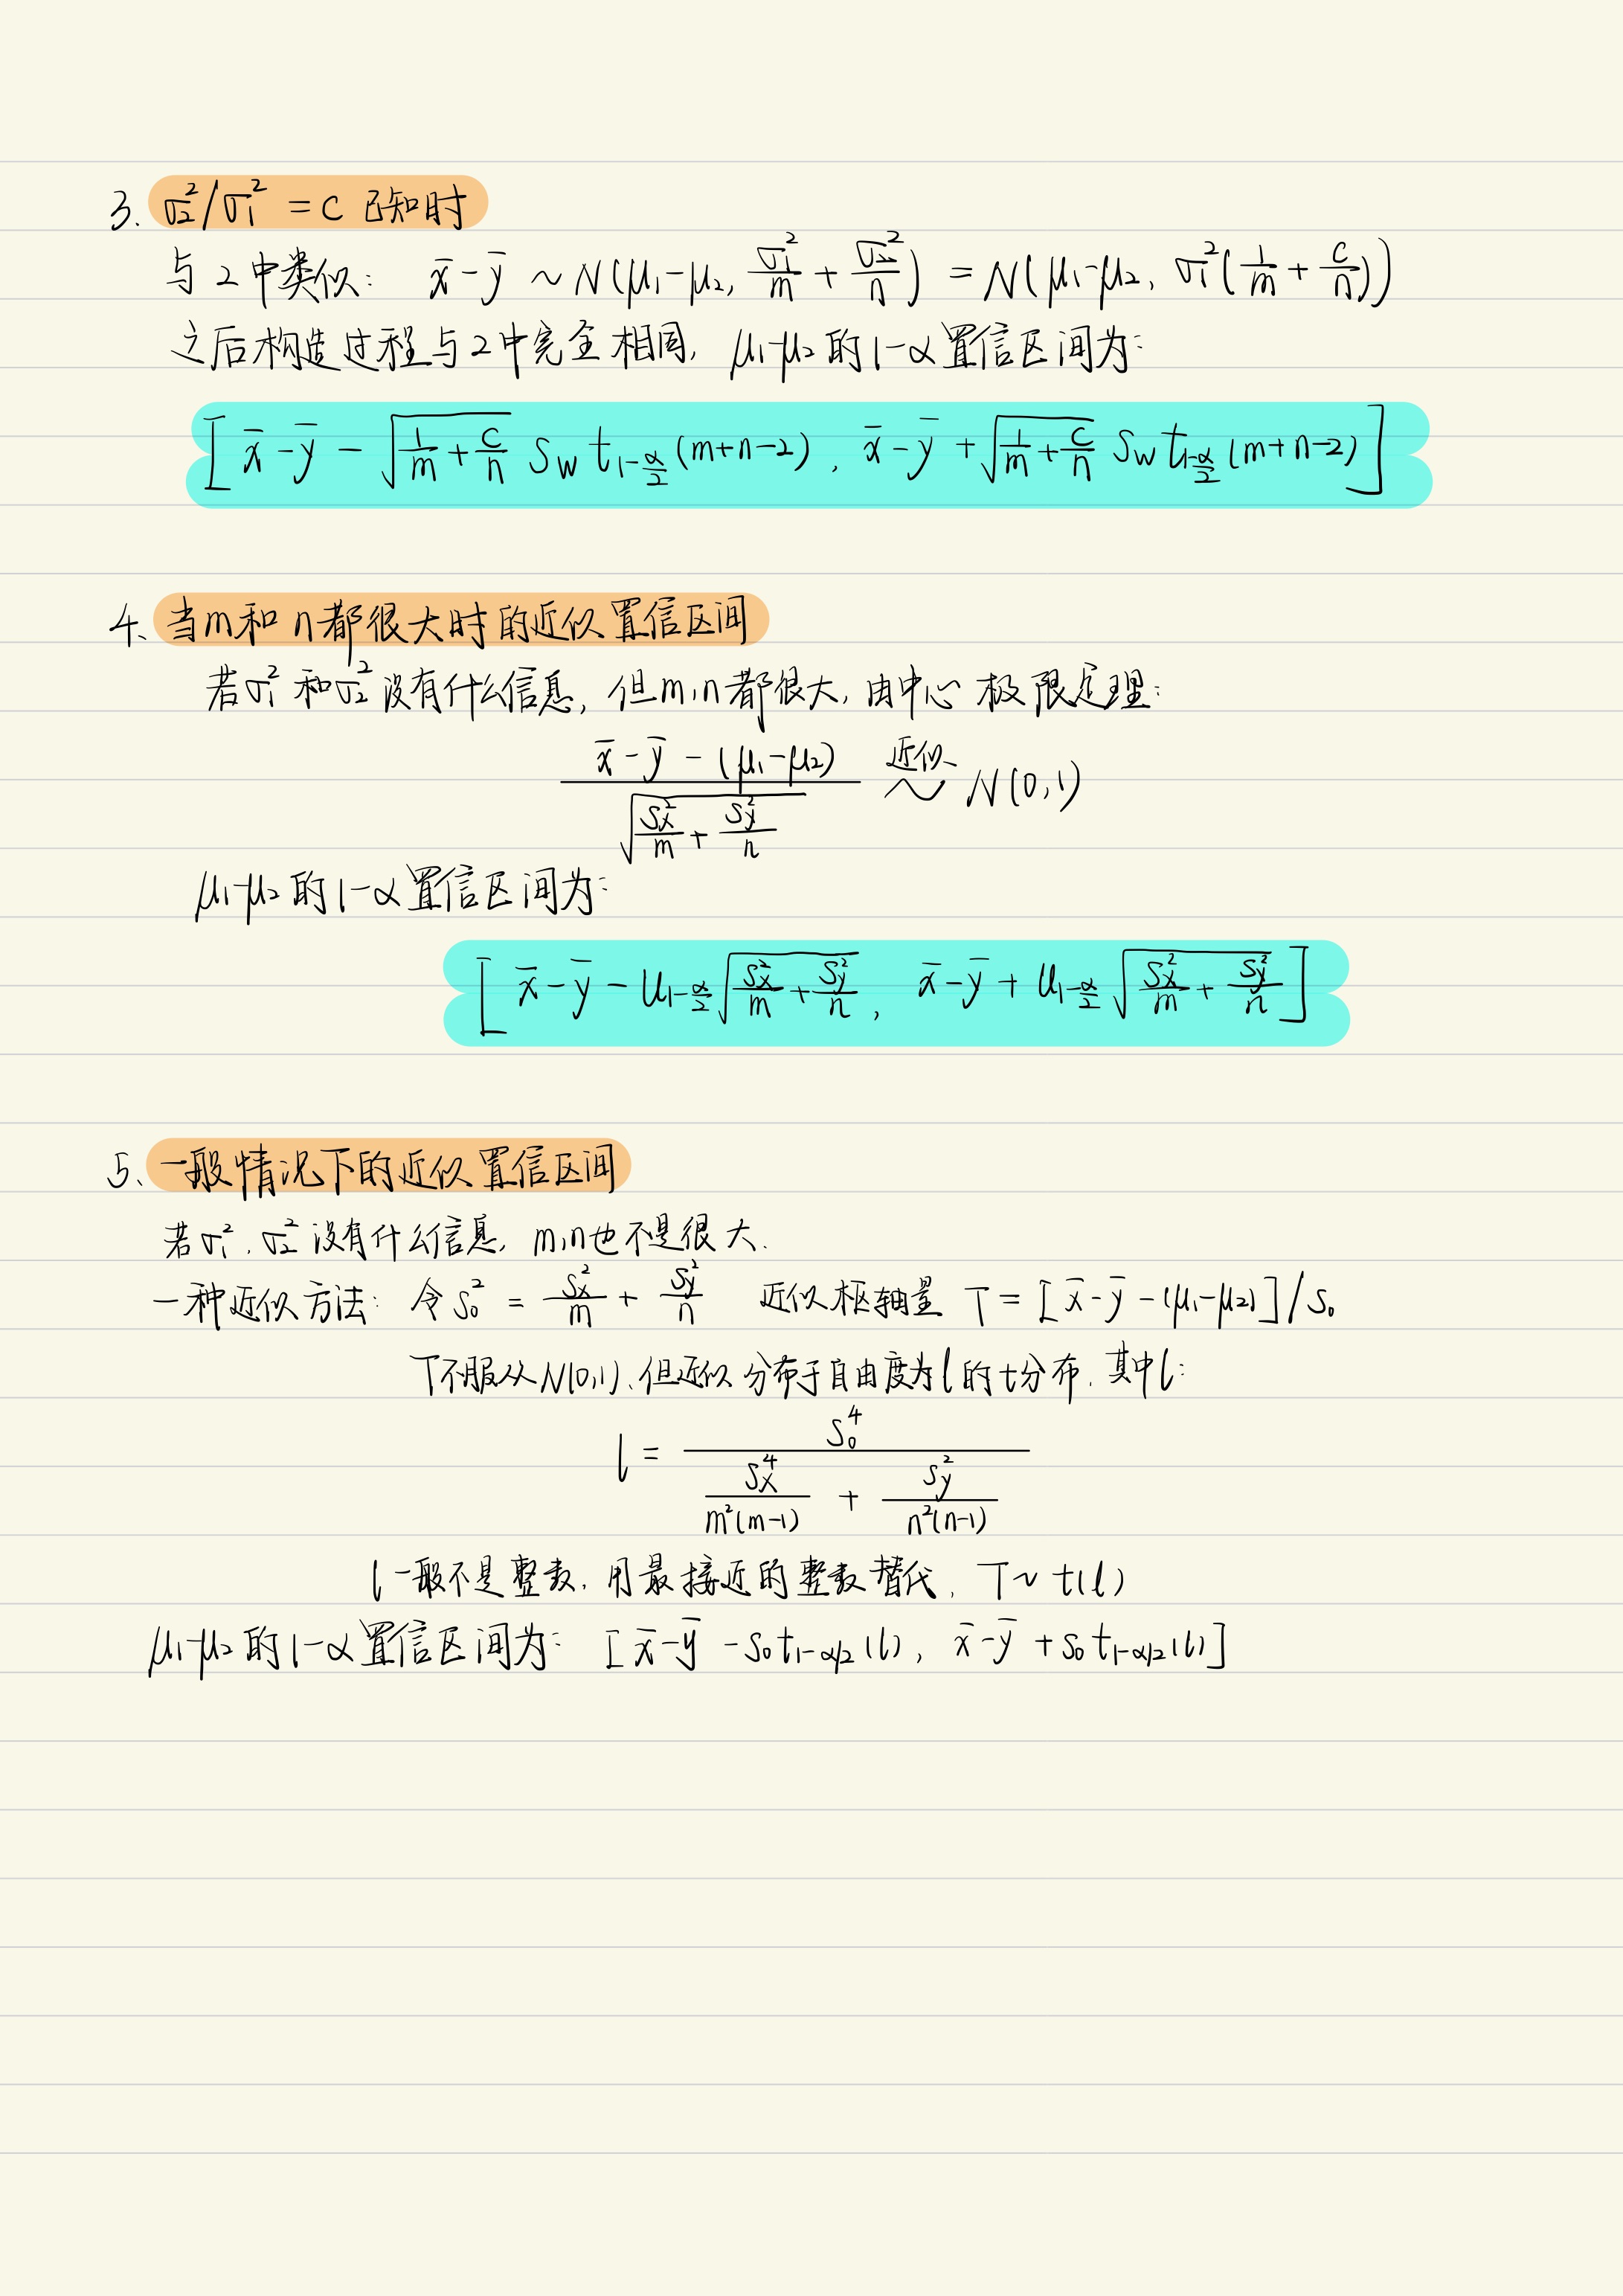 3. σ₂²/σ₁² = c 已知时
与2中类似: x̄-ȳ ~ N(μ₁-μ₂, σ₁²/m + σ₂²/n) = N(μ₁-μ₂, σ₁²(1/m + c/n))
之后构造过程与2中完全相同, μ₁-μ₂的1-α置信区间为:
[x̄-ȳ - √(1/m + c/n) S_w t_{1-α/2}(m+n-2), x̄-ȳ + √(1/m + c/n) S_w t_{1-α/2}(m+n-2)]
4、当m和n都很大时的近似置信区间
若σ₁²和σ₂²没有什么信息, 但m,n都很大, 由中心极限定理:
(x̄-ȳ - (μ₁-μ₂)) / √(S_x²/m + S_y²/n) 近似~ N(0,1)
μ₁-μ₂的1-α置信区间为:
[x̄-ȳ - u_{1-α/2} √(S_x²/m + S_y²/n), x̄-ȳ + u_{1-α/2} √(S_x²/m + S_y²/n)]
5、一般情况下的近似置信区间
若σ₁², σ₂²没有什么信息, m,n也不是很大.
一种近似方法: 令 S₀² = S_x²/m + S_y²/n 近似枢轴量 T = [x̄-ȳ-(μ₁-μ₂)]/S₀
T不服从N(0,1), 但近似分布于自由度为l的t分布. 其中l:
l = S₀⁴ / (S_x⁴/(m²(m-1)) + S_y²/(n²(n-1)))
l一般不是整数, 用最接近的整数替代, T ~ t(l)
μ₁-μ₂的1-α置信区间为: [x̄-ȳ - S₀ t_{1-α/2}(l), x̄-ȳ + S₀ t_{1-α/2}(l)]